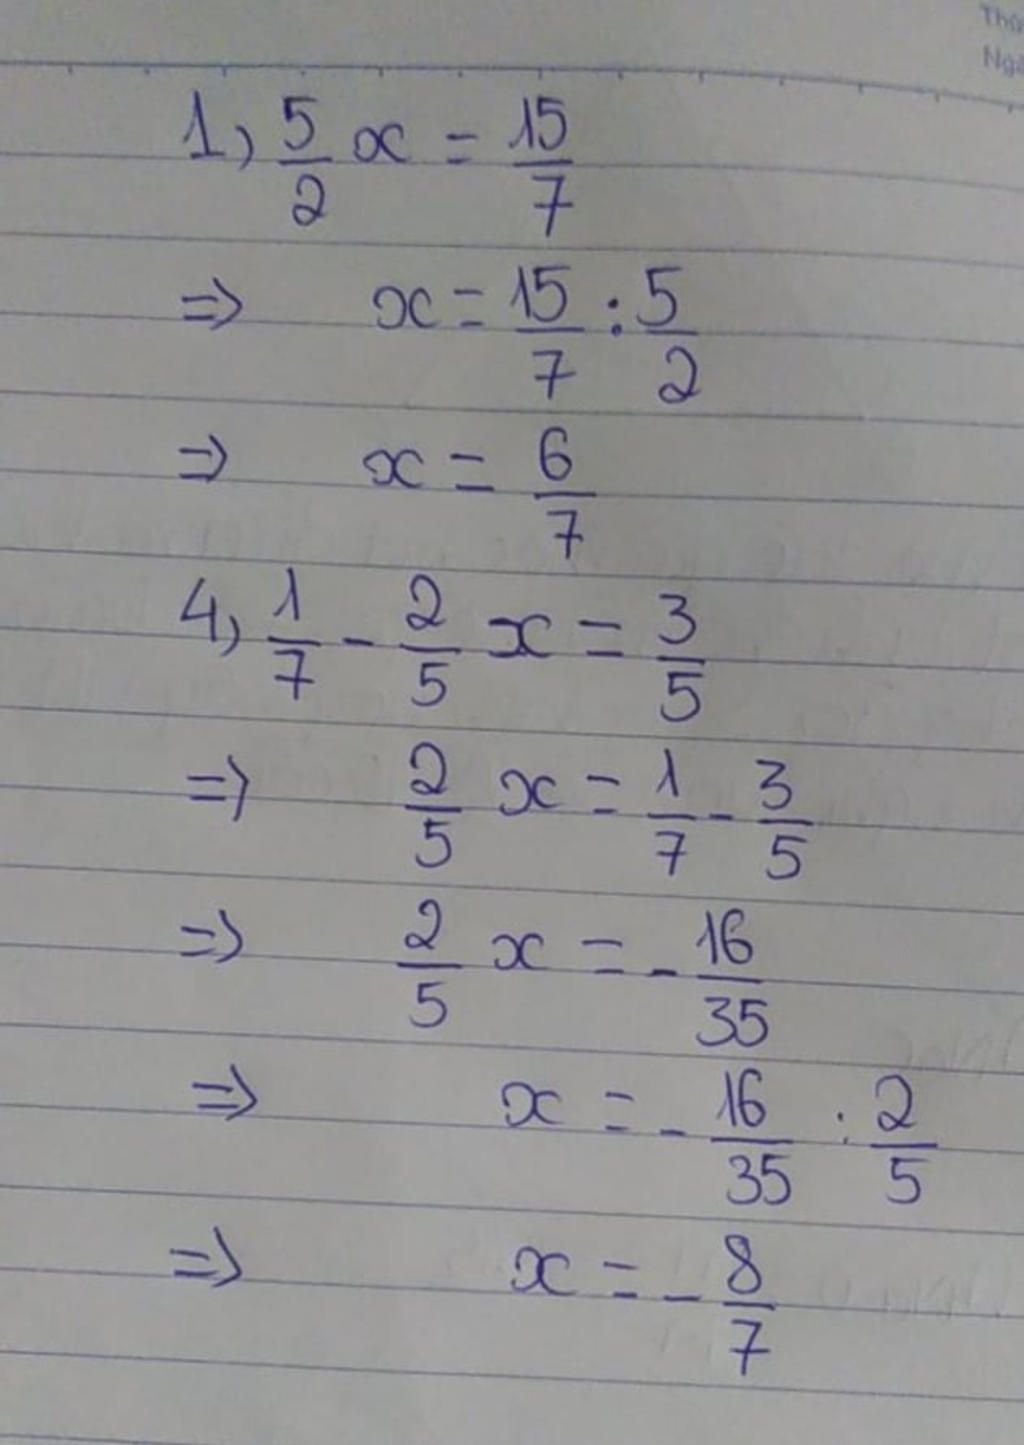 1) 5/2 x = 15/7
=> x = 15/7 : 5/2
=> x = 6/7
4) 1/7 - 2/5 x = 3/5
=> 2/5 x = 1/7 - 3/5
=> 2/5 x = - 16/35
=> x = - 16/35 : 2/5
=> x = - 8/7